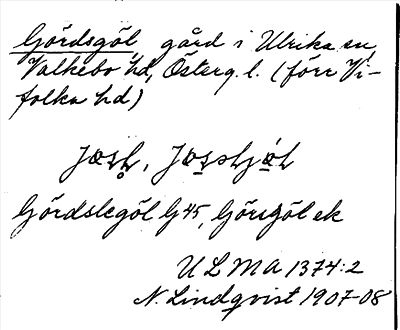 Gördsgöl, gård i Ulrika sn,
Valkebo hd, Österg. l. (förr Vi-
folka hd)
Gördslegöl G 45, Görsgöl ek
ULMA 1374:2
N. Lindqvist 1907-08